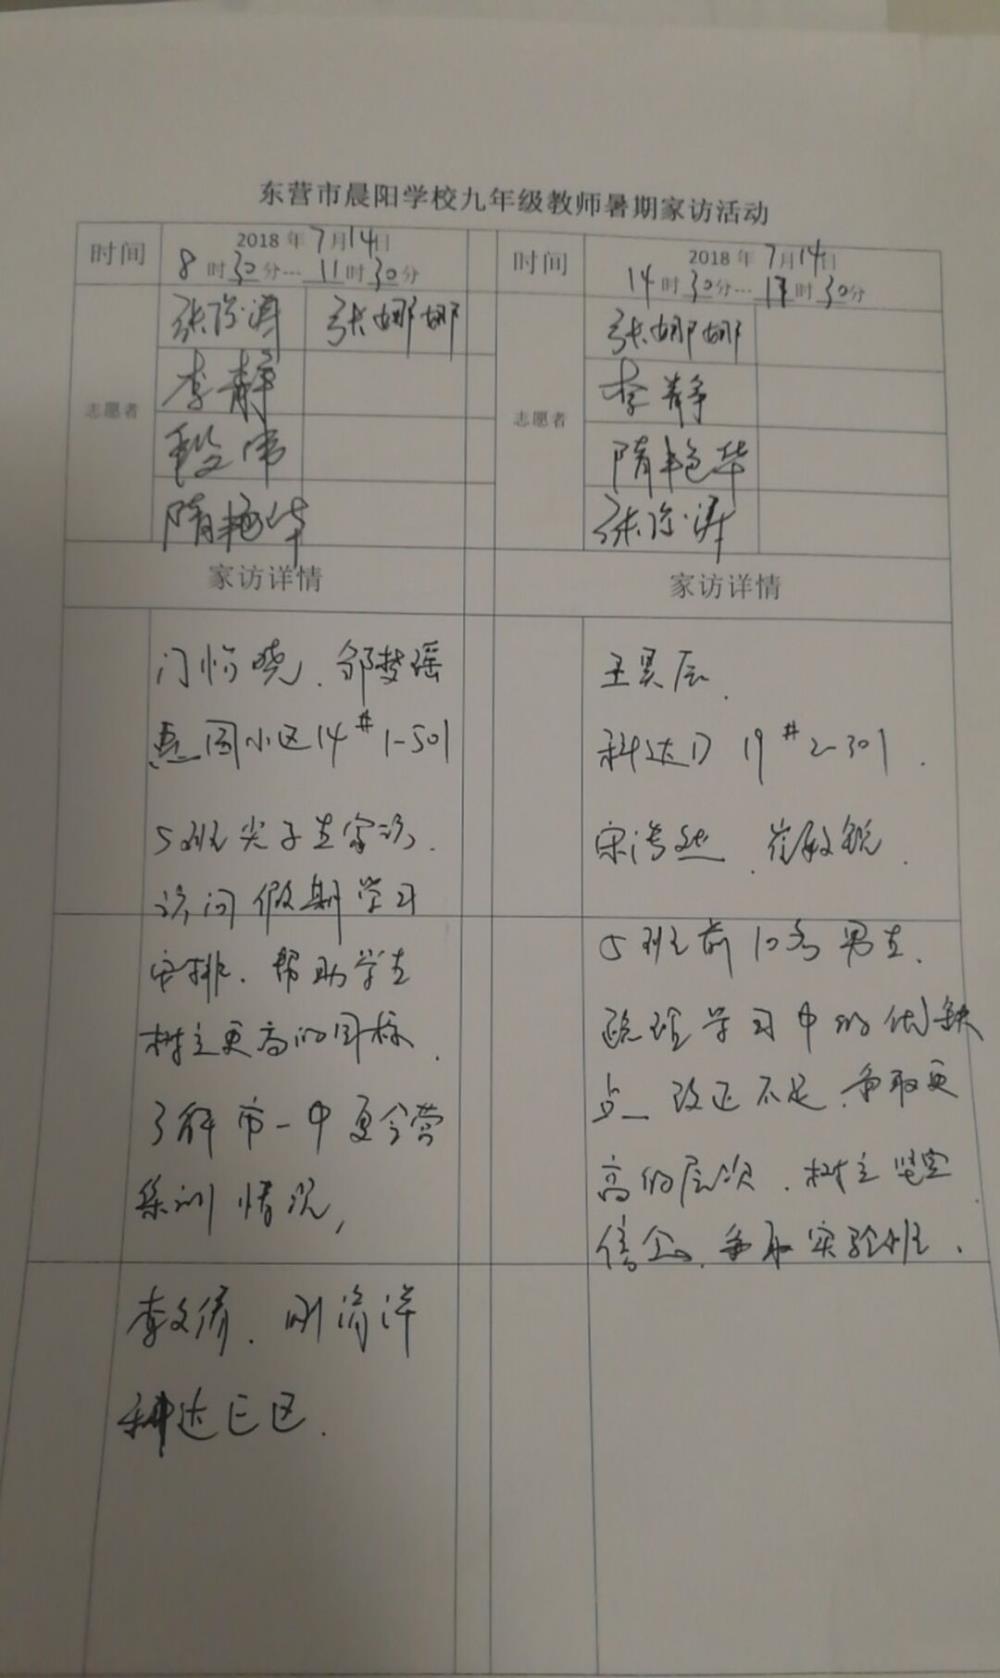 东营市晨阳学校九年级教师暑期家访活动
时间
2018年7月14日
8时30分---11时30分
志愿者
张娜娜
李静
程伟
隋艳华
家访详情
门怡晓.邹梦瑶
园小区14#1-501
5班尖子生家访.
访问假期学习
安排.帮助学生
树立更高的目标.
了解市一中夏令营
集训情况,
李文倩.
科达E区.
时间
2018年7月14日
14时30分---17时30分
志愿者
张娜娜
李静
隋艳华
家访详情
王昊辰.
科达D 19#2-301.
宋浩然.崔敏锐.
5班前10名男生.
疏理学习中的优缺
点.改正不足.争取更
高的层次.树立坚定
信念.争取实验班.